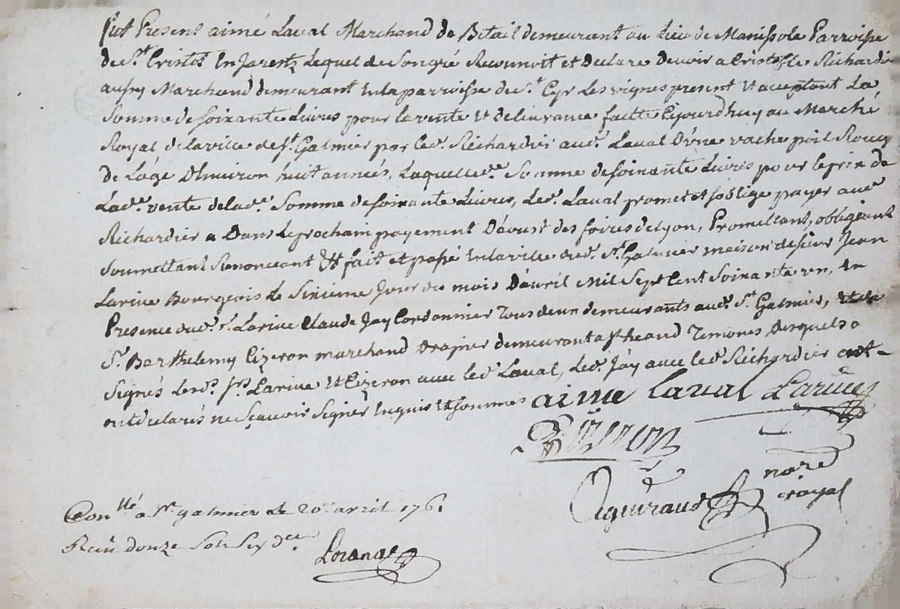 fut Present aimé Laval Marchand de Bétail demeurant au Lieu de Manissole Parroisse
de St. Cristo En Jarentz Lequel de son gré Reconnoit et declare devoir a Cristofle Richardier
aussy Marchand demeurant En la parroisse de St. Cyr Les vignes present Et acceptant La
Somme de soixante Livres pour la vente Et delivrance faitte Cejourdhuy au Marché
Royal de la ville de St. Galmier par led. Richardier aud. Laval D'une vache poil Rouge
de L'age D'Environ huit années, Laquelle Somme de soixante Livres pour le prix de
Lade. vente de lade. Somme de soixante Livres, Led. Laval promet et s'oblige payer aud.
Richardier a Dans Le prochain payement D'aoust des foires de Lyon, Promettant, obligeant
Soumettant Renonceant Et fait et passé En la ville de St. Galmier maison de sieur Jean
Larive Bourgeois Le Sixième Jour du mois D'avril Mil Sept Cent Soixante un, En
Presence dud. Sr. Larive Claude Jay Cordonnier Tous deux demeurants aud. St. Galmier,
Sr. Barthelemy Eizeron marchand drapier demeurant a St heand Temoins Lesquels
Signés Lesd. Srs Larive Et Eizeron avec led. Laval, Led. Jay avec led. Richardier ont
déclarés ne sçavoir Signer Enquis Et sommés aime laval Larive
Eizeron
not.e
royal
Conllé a St galmier le 20 avril 1761
Reçu douze Sols Six der